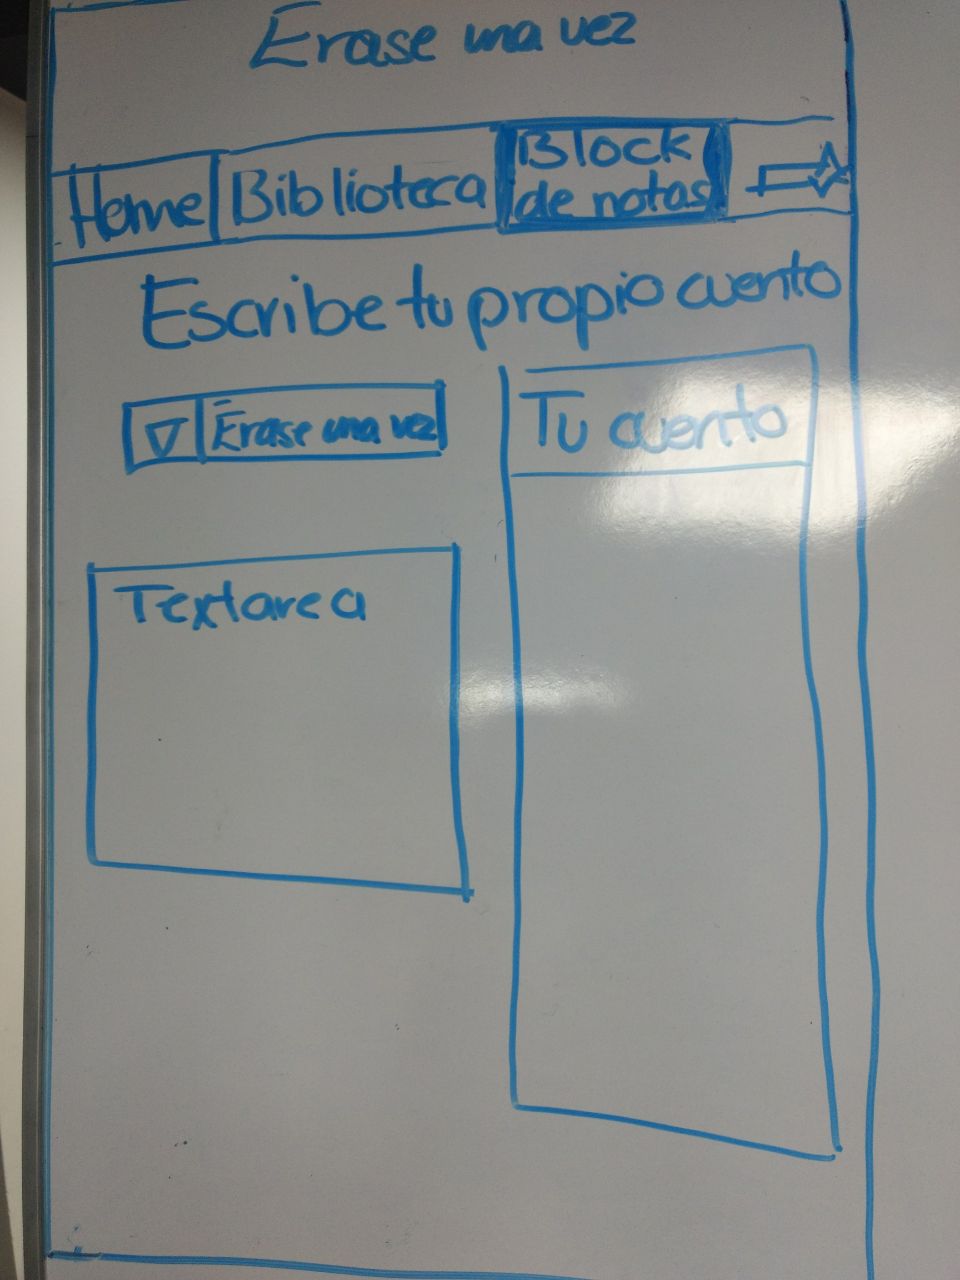 Erase una vez
Home Biblioteca Block de notas
Escribe tu propio cuento
Erase una vez
Tu cuento
Textarea